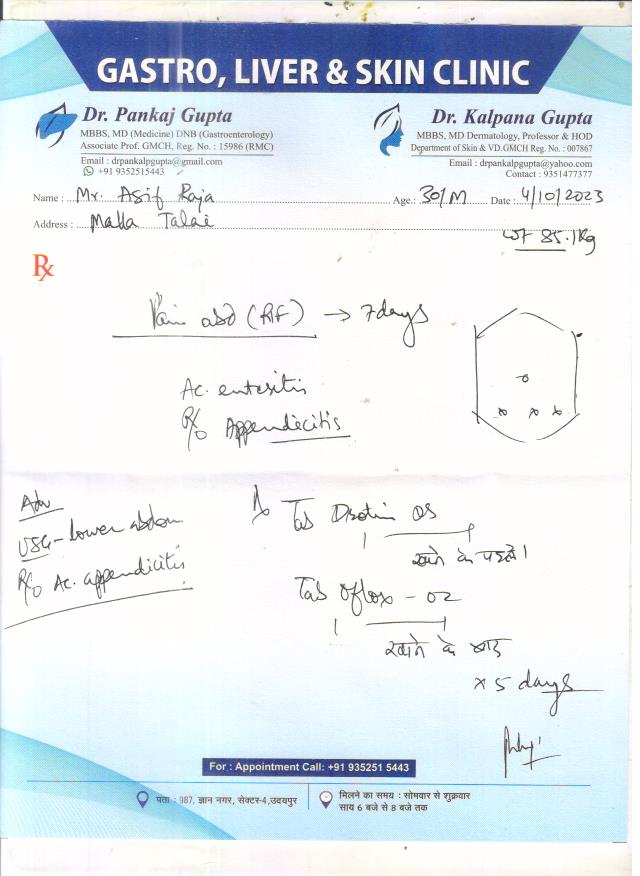 GASTRO, LIVER & SKIN CLINIC
Dr. Pankaj Gupta
MBBS, MD (Medicine) DNB (Gastroenterology)
Associate Prof. GMCH, Reg. No. : 15986 (RMC)
Email : drpankalpgupta@gmail.com
+91 9352515443
Dr. Kalpana Gupta
MBBS, MD Dermatology, Professor & HOD
Department of Skin & VD. GMCH Reg. No. : 007867
Email : drpankalpgupta@yahoo.com
Contact : 9351477377
Name : Mr. Asif Raja Age : 30/M Date : 4/10/2023
Address : Malla Talai
WT 85.1Kg
Rx
Pain abd (RIF) → 7days
Ac. enteritis
R/o Appendecitis
Adv
USG - lower abdom
R/o Ac. appendicitis
Tab Drotin DS
खाने के पहले।
Tab Oflox - OZ
खाने के बाद
x 5 days
For : Appointment Call: +91 935251 5443
पता : 987, ज्ञान नगर, सेक्टर-4,उदयपुर
मिलने का समय : सोमवार से शुक्रवार
साय 6 बजे से 8 बजे तक